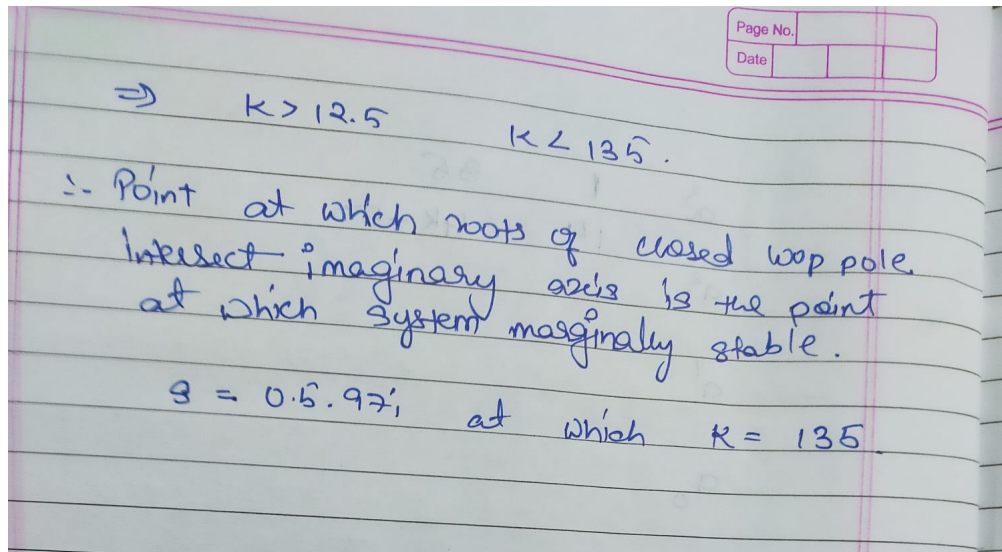 Page No.
Date
⇒ K > 12.5 K < 135.
∴ Point at which roots of closed loop pole
intersect imaginary axis is the point
at which system marginally stable.
s = 0.5.97i, at which K = 135